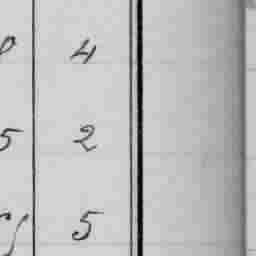 4
5 2
5